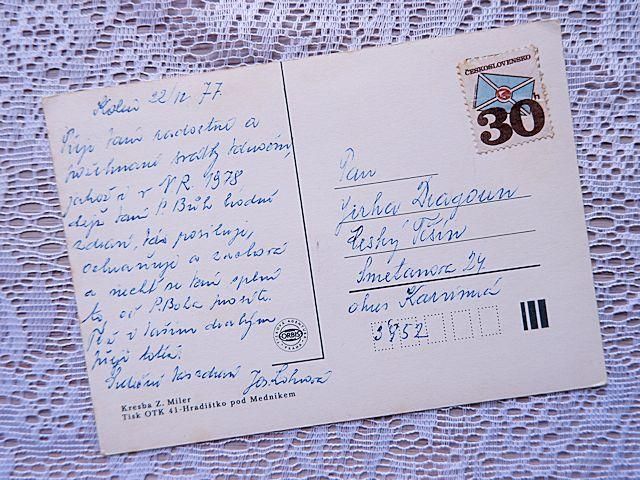 22/12 77.
Přeji Vám radostné a
požehnané svátky vánoční,
jakož i v N.R. 1978
dejž Vám P. Bůh hodně
zdraví, Vás posiluje,
ochraňuje a zachová
a nechť se Vám splní
to, oč P. Boha prosíte.
Též i Vašim drahým
přeje totéž.
Srdečně Vás zdraví
Kresba Z. Miler
Tisk OTK 41-Hradištko pod Medníkem
ORBIS
ČESKOSLOVENSKO
30h
Pan
Jirka Dragoun
Český Těšín
Smetanova 24
okres Karvinná